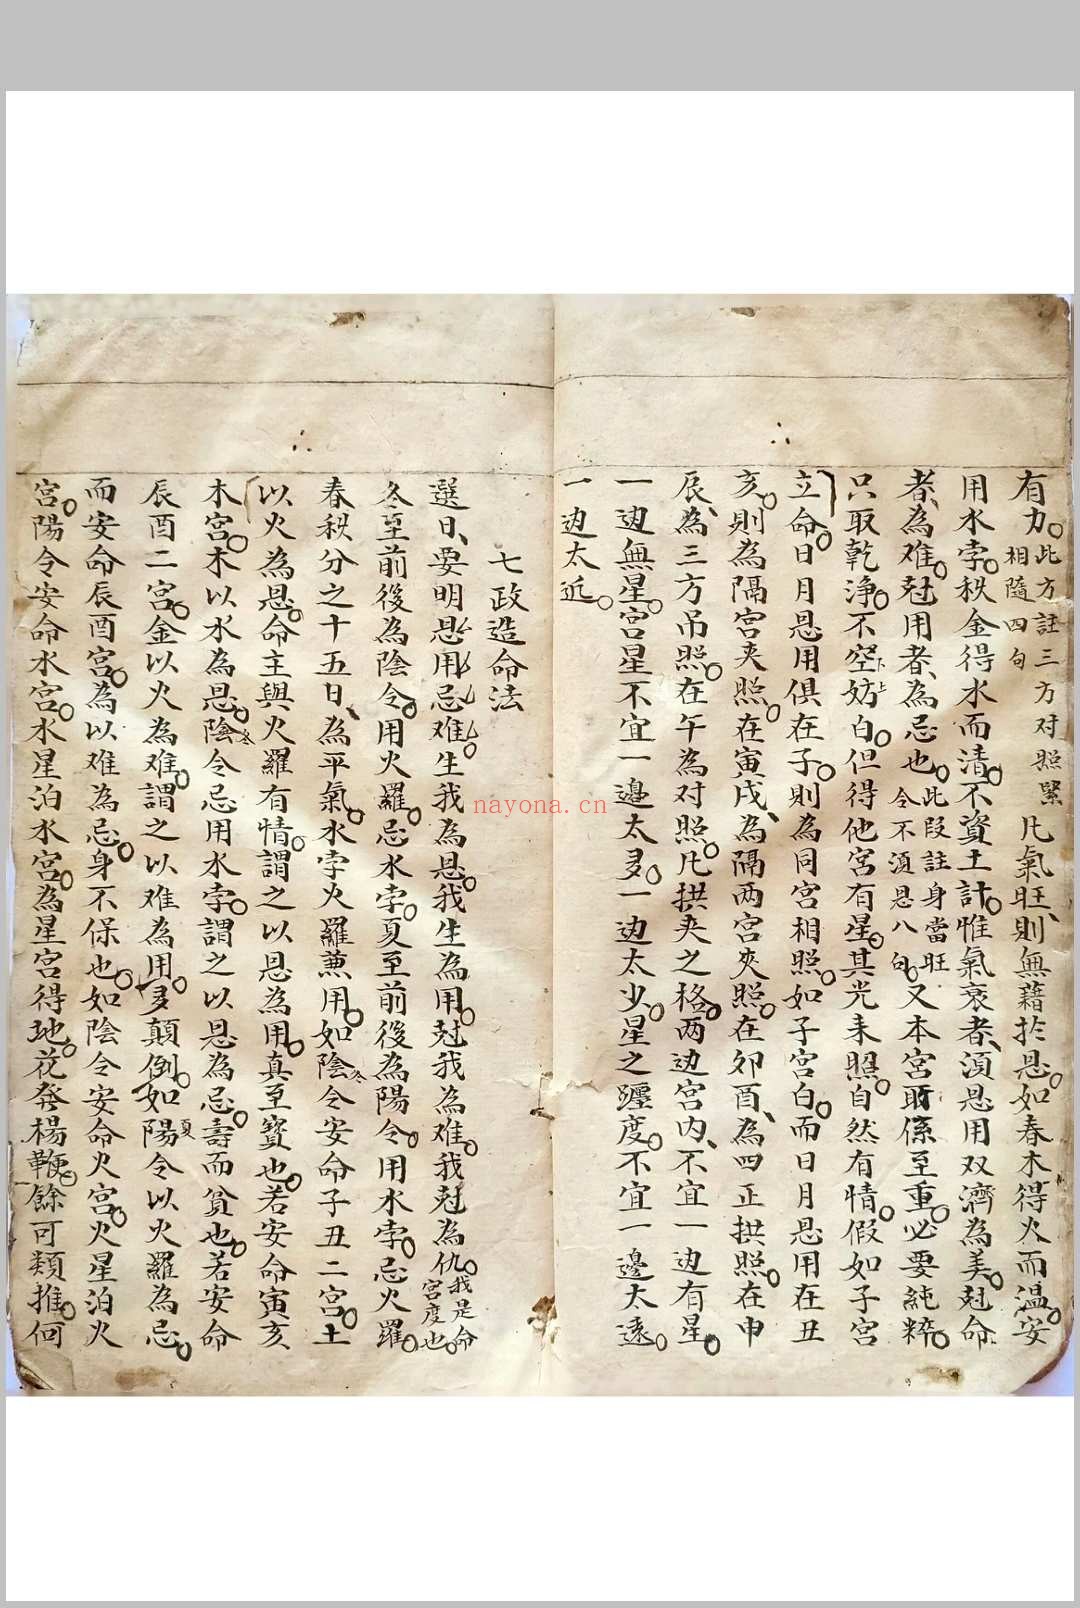 有力此方註三方对照緊相隨四句凢氣旺則無藉於恩如春木得火而温安
用水孛秋金得水而清不資土計惟氣衰者湏恩用双濟為美尅命
者為难尅用者為忌也此段註身當旺令不湏恩八句又本宮所係至重必要純粹
只取乾淨不空妨白但得他宮有星其光来照自然有情假如子宮
立命日月恩用俱在子則為同宮相照如子宮白而日月恩用在丑
亥則為隔宮夾照在寅戌為隔两宮夾照在卯酉為四正拱照在申
辰為三方吊照在午為对照凢拱夾之格两边宮内不宜一边有星
一边無星宮星不宜一邊太多一边太少星之躔度不宜一邊太遠
一边太近
七政造命法
選日要明恩用忌难生我為恩我生為用尅我為难我尅為仇我是命宮度也
冬至前後為陰令用火羅忌水孛夏至前後為陽令用水孛忌火羅
春秋分之十五日為平氣水孛火羅兼用如陰冬令安命子丑二宮土
以火為恩命主與火羅有情謂之以恩為用真至寳也若安命寅亥
木宮木以水為恩陰冬令忌用水孛謂之以恩為忌壽而貧也若安命
辰酉二宮金以火為难謂之以难為用多顛倒如陽夏令以火羅為忌
而安命辰酉宮為以难為忌身不保也如陰令安命火宮火星泊火
宮陽令安命水宮水星泊水宮為星宮得地花發楊鞭餘可類推何
nayona.cn